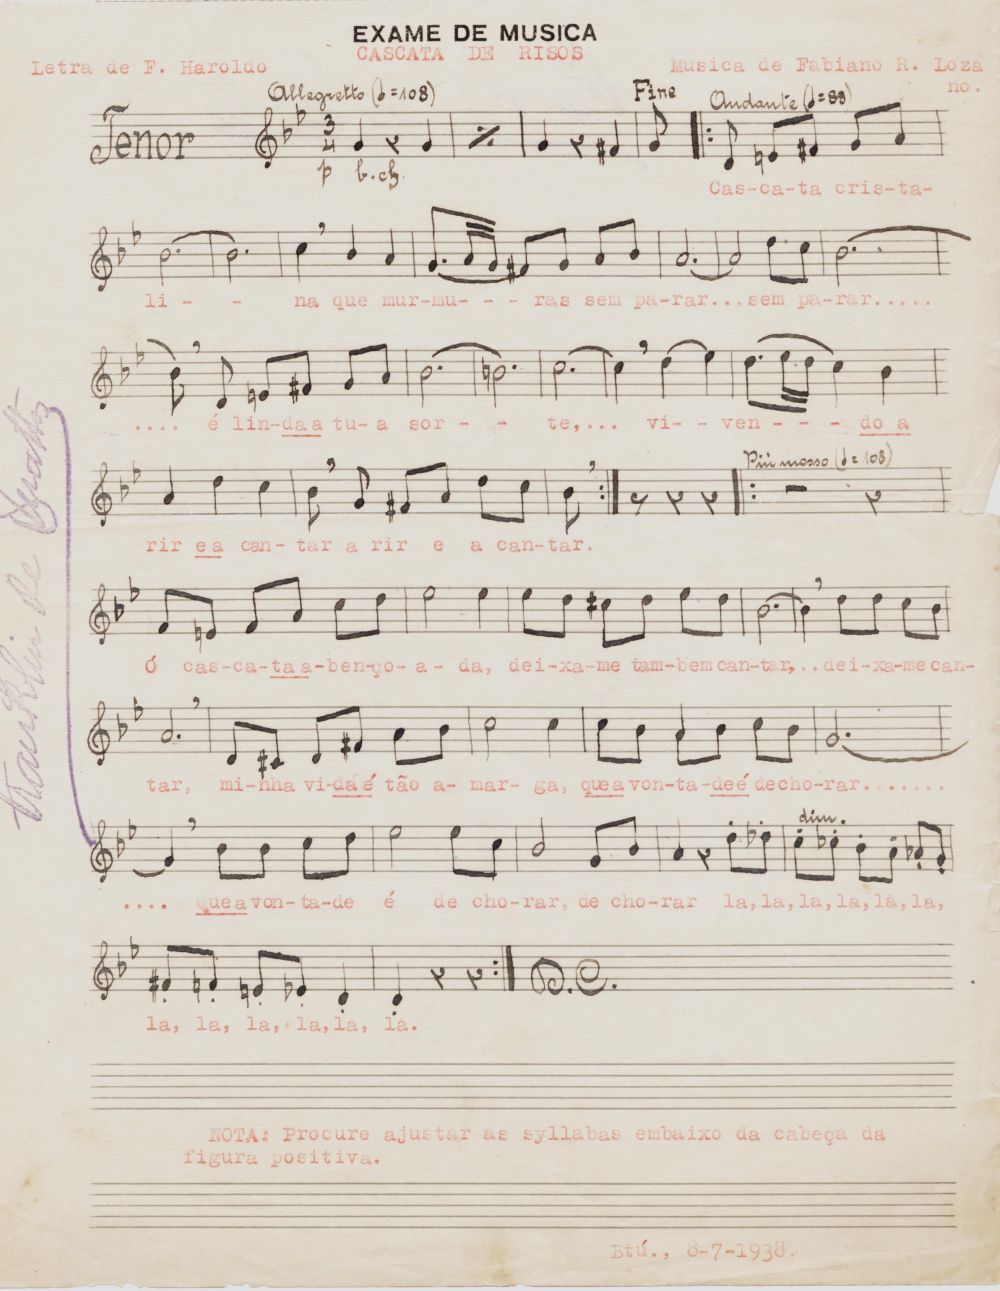 EXAME DE MUSICA
CASCATA DE RISOS
Letra de F. Haroldo
Musica de Fabiano R. Loza
no.
Allegretto (♩=108)
Fine
Andante (♩=88)
Tenor
p b.ch.
Cas-ca-ta cris-ta-
li - - na que mur-mu- - - ras sem pa-rar...sem pa-rar.....
.... é lin-da a tu-a sor - - te,... vi- - ven - - - do a
Più mosso (♩=108)
rir e a can- tar a rir e a can-tar.
Ó cas-ca-ta a-ben-ço- a- da, dei-xa-me tam-bem can-tar,..dei-xa-me can-
tar, mi-nha vi-da é tão a- mar- ga, que a von-ta-de é de cho-rar.......
dim.
.... Que a von-ta-de é de cho-rar, de cho-rar la, la, la, la, la, la,
la, la, la, la, la, la.
D.C.
NOTA: Procure ajustar as syllabas embaixo da cabeça da
figura positiva.
Btú., 8-7-1938.